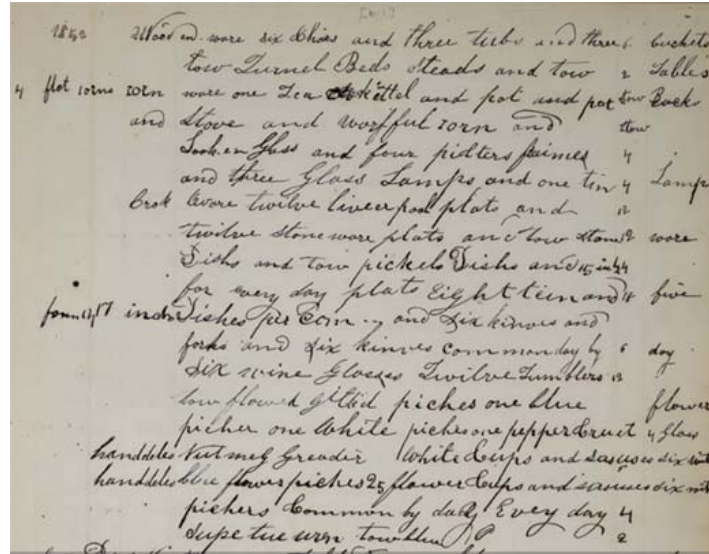 1842 Wooden ware six Chies and three tubs and three 6 buckets
tow Turnel Beds steads and tow 2 Tables
4 flat iorns iorn ware one Tea Kettel and pot and pot tow Backs
and Stove and wafful iorn and tow
Look en Glass and four picters faimes 4
and three Glass Lamps and one tin 4 Lamp
Crok Ware twelve liveerpool plats and 12
twilve stone ware plats and tow stone 12 ware
Dishs and tow pickels Dishs and 15 24
for every day plats Eighteein and 18 five
Dishes per Com and six kinves and
forks and six kinves comman day by 6 day
six wine Glosses Twilve Tumblers 12
tow flowed gilted piches one blue flower
picher one White piches one pepper Cruet 4 Glass
handdeles Nutmeg Greader White Cups and sasuses six
handdeles blue flower piches 25 flower Cups and sasuses six
pichers Common by day Every day 4
Supe tue uren tow blue 2